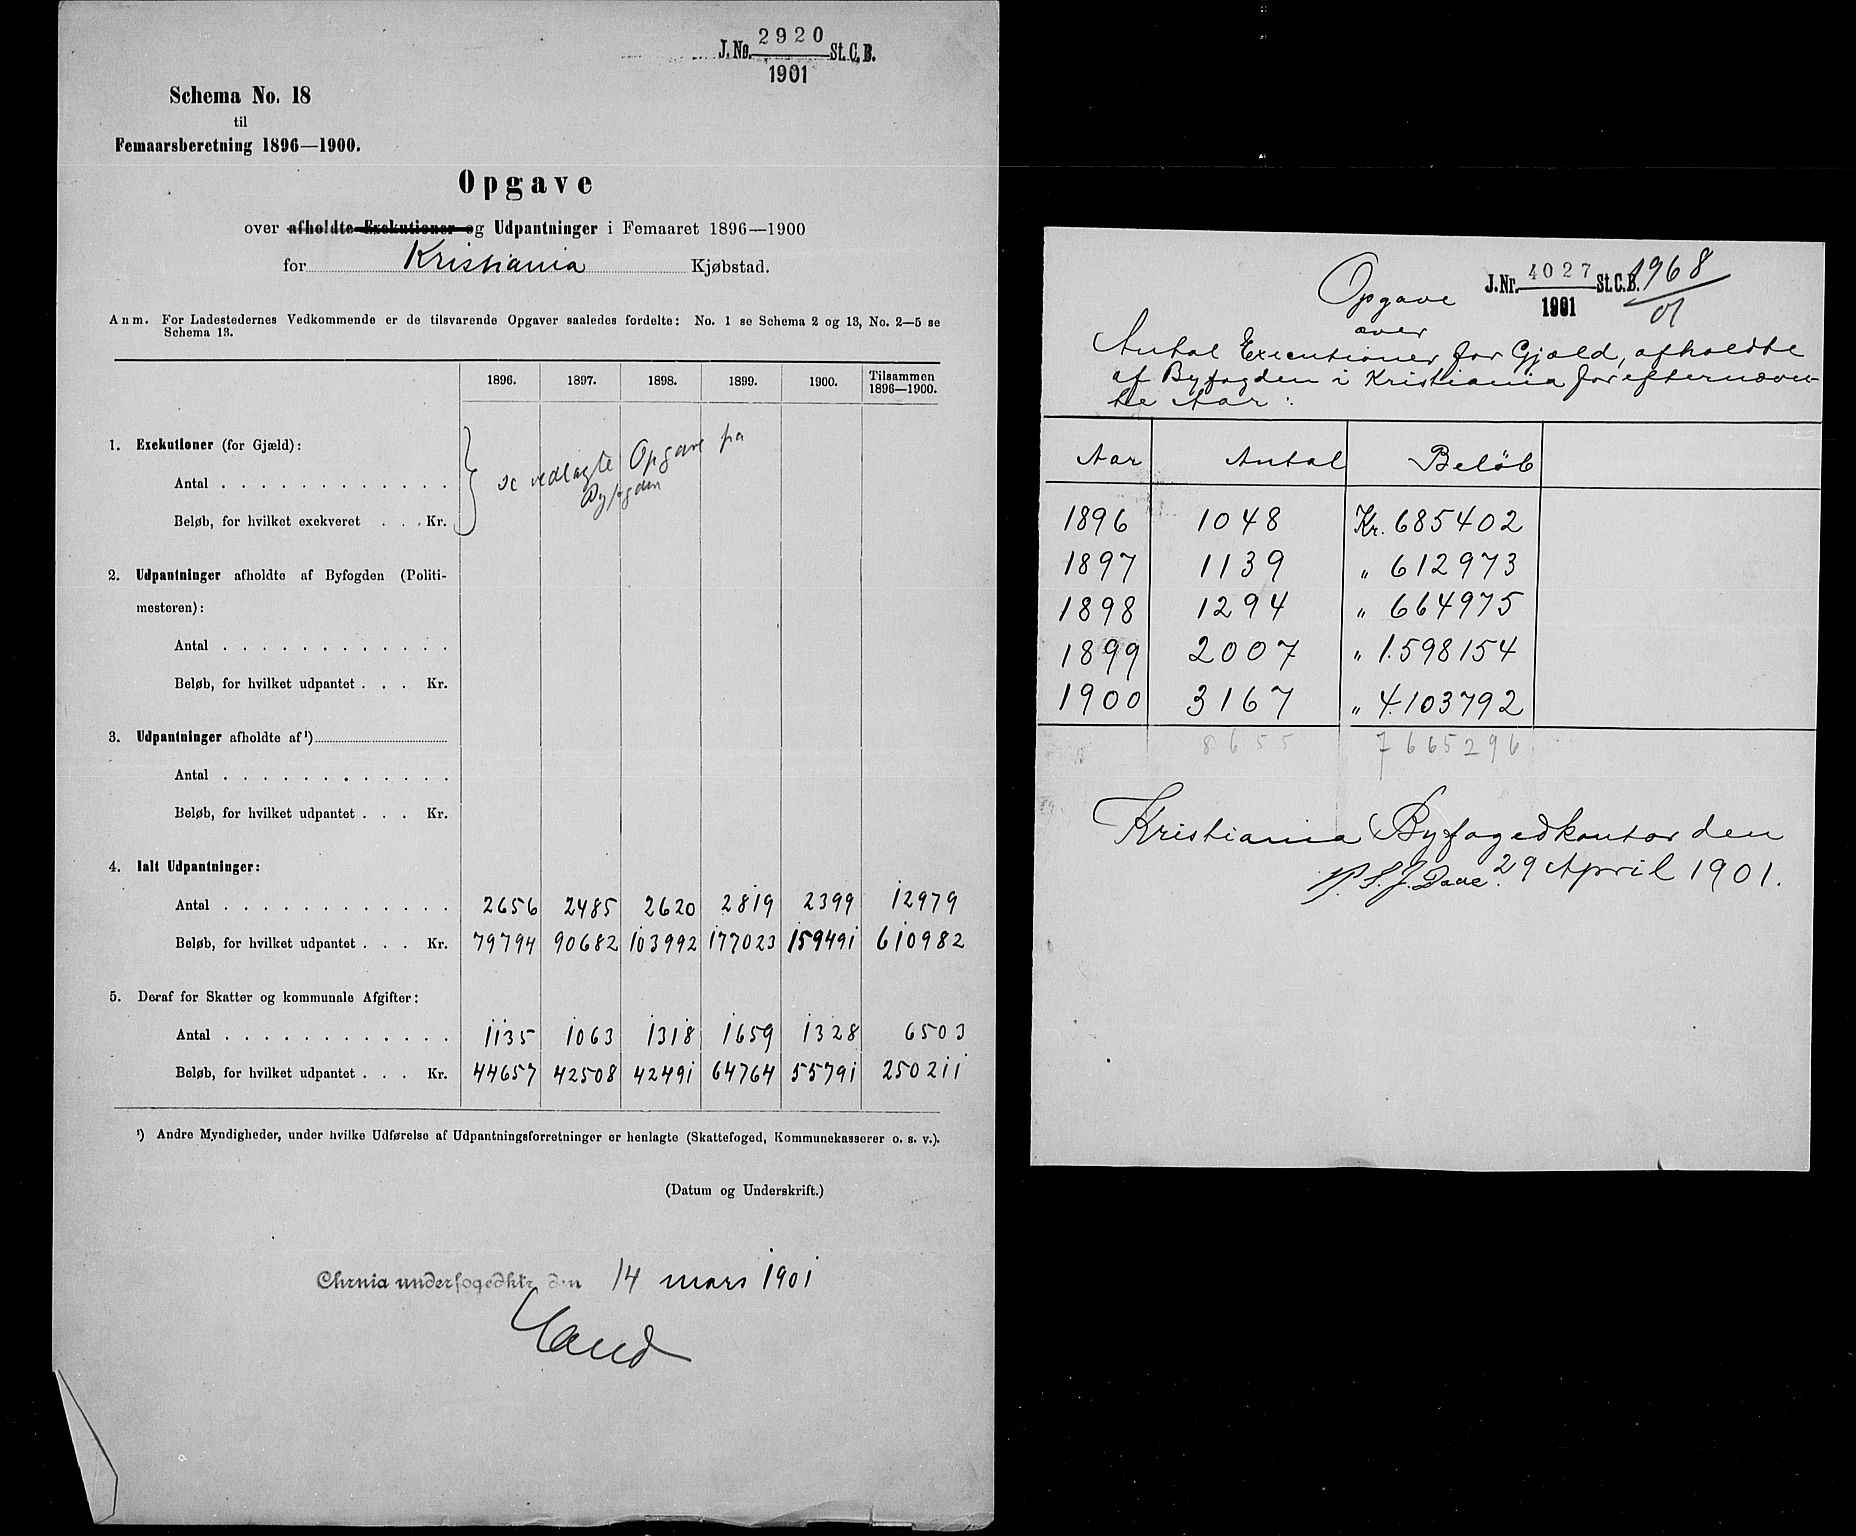 J. No. 2920 St. C. B.
1901
Schema No. 18
til
Femaarsberetning 1896—1900.
Opgave
over afholdte Exekutioner og Udpantninger i Femaaret 1896—1900
for Kristiania Kjøbstad.
Anm. For Ladestedernes Vedkommende er de tilsvarende Opgaver saaledes fordelte: No. 1 se Schema 2 og 13, No. 2—5 se
Schema 13.
1896. 1897. 1898. 1899. 1900. Tilsammen 1896—1900.
1. Exekutioner (for Gjæld):
Antal . . . . . . . . . . . .
Beløb, for hvilket exekveret . . . Kr.
se vedlagte Opgave fra
Byfogden
2. Udpantninger afholdte af Byfogden (Politi-
mesteren):
Antal . . . . . . . . . . . .
Beløb, for hvilket udpantet . . . Kr.
3. Udpantninger afholdte af ¹)
Antal . . . . . . . . . . . .
Beløb, for hvilket udpantet . . . Kr.
4. Ialt Udpantninger:
Antal . . . . . . . . . . . . 2656 2485 2620 2819 2399 12979
Beløb, for hvilket udpantet . . . Kr. 79794 90682 103992 177023 159491 610982
5. Deraf for Skatter og kommunale Afgifter:
Antal . . . . . . . . . . . . 1135 1063 1318 1659 1328 6503
Beløb, for hvilket udpantet . . . Kr. 44657 42508 42491 64764 55791 250211
¹) Andre Myndigheder, under hvilke Udførelse af Udpantningsforretninger er henlagte (Skattefoged, Kommunekasserer o. s. v.).
(Datum og Underskrift.)
Chrnia underfogedktr. den 14 mars 1901
Opgave
J. Nr. 4027 St. C. B. 1968
1901 01
over
Antal Executioner for Gjæld, afholdte
af Byfogden i Kristiania for efternævn-
te Aar:
Aar Antal Beløb
1896 1048 Kr. 685402
1897 1139 " 612973
1898 1294 " 664975
1899 2007 " 1.598154
1900 3167 " 4.103792
8655 7665296
Kristiania Byfogedkontor den
29 April 1901.